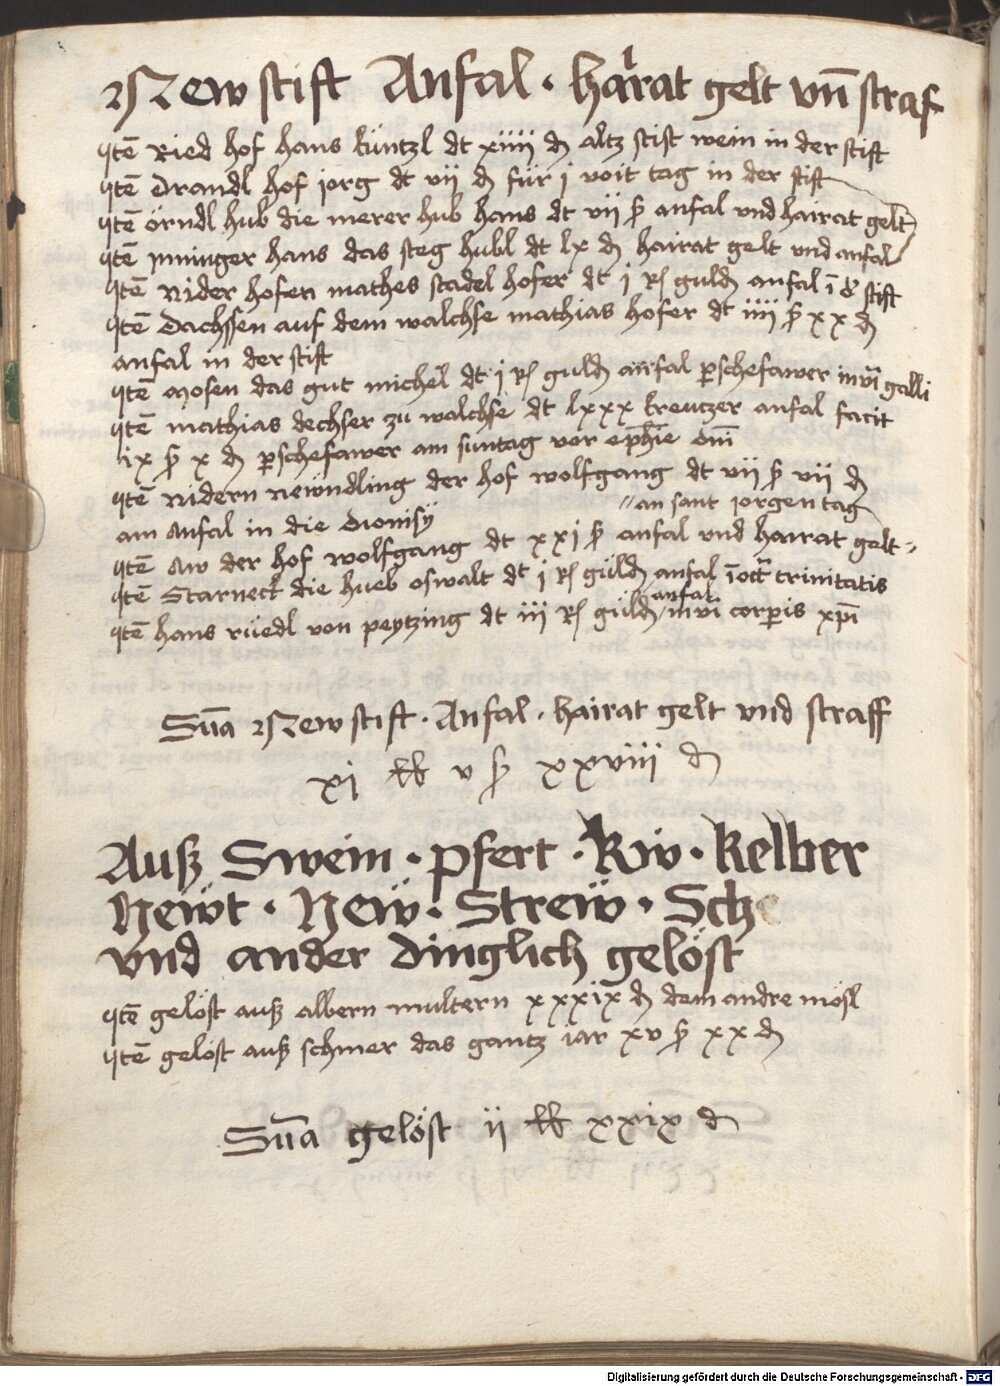 Newstift Anfal · hairat gelt vn̄ straf
Itē Ried hof hans küntzl dt xiiii ₰ altz stift wein in der stift
Itē Drandl hof jorg dt vij ₰ für j voit tag in der stift
Itē örndl hub die merer hub hans dt vij ß anfal vnd hairat gelt
Itē hans das steg hubl dt lx ₰ hairat gelt vnd anfal
Itē Nider hofen mathes stadel hofer dt j R guld anfal ī d stift
Itē Dachssen auf dem walchse mathias hofer dt iiii ß xx ₰
anfal in der stift
Itē Mosen das gut michel dt j R guld anfal pschefawer in vi galli
Itē mathias dechser zu walchse dt lxxx kreutzer anfal facit
ix ß x ₰ pschefawer am suntag vor ephie dm̄
Itē Nidern newndling der hof wolfgang dt vij ß vij ₰
am anfal in die dionisÿ
"an sant jorgen tag
Itē Aw der hof wolfgang dt xxj ß anfal vnd hairat gelt "
Itē Starneck die hueb oswalt dt j R güld anfal ī oct trinitatis
anfal
Itē hans rüedl von peytzing dt iij R güld in vi corpis xpī
Sūa Newstift · Anfal · hairat gelt vnd straff
xj ℔ v ß xxviii ₰
Auß Swein · pfert · Kw · Kelber
Hewt · Hew · Strew ·
vnd ander dinglich gelöst
Itē gelöst auß albern multern xxxix ₰ dem andre mösl
Itē gelöst auß schmer das gantz iar xv ß xx ₰
Sūa gelöst ij ℔ xxix ₰
Digitalisierung gefördert durch die Deutsche Forschungsgemeinschaft - DFG